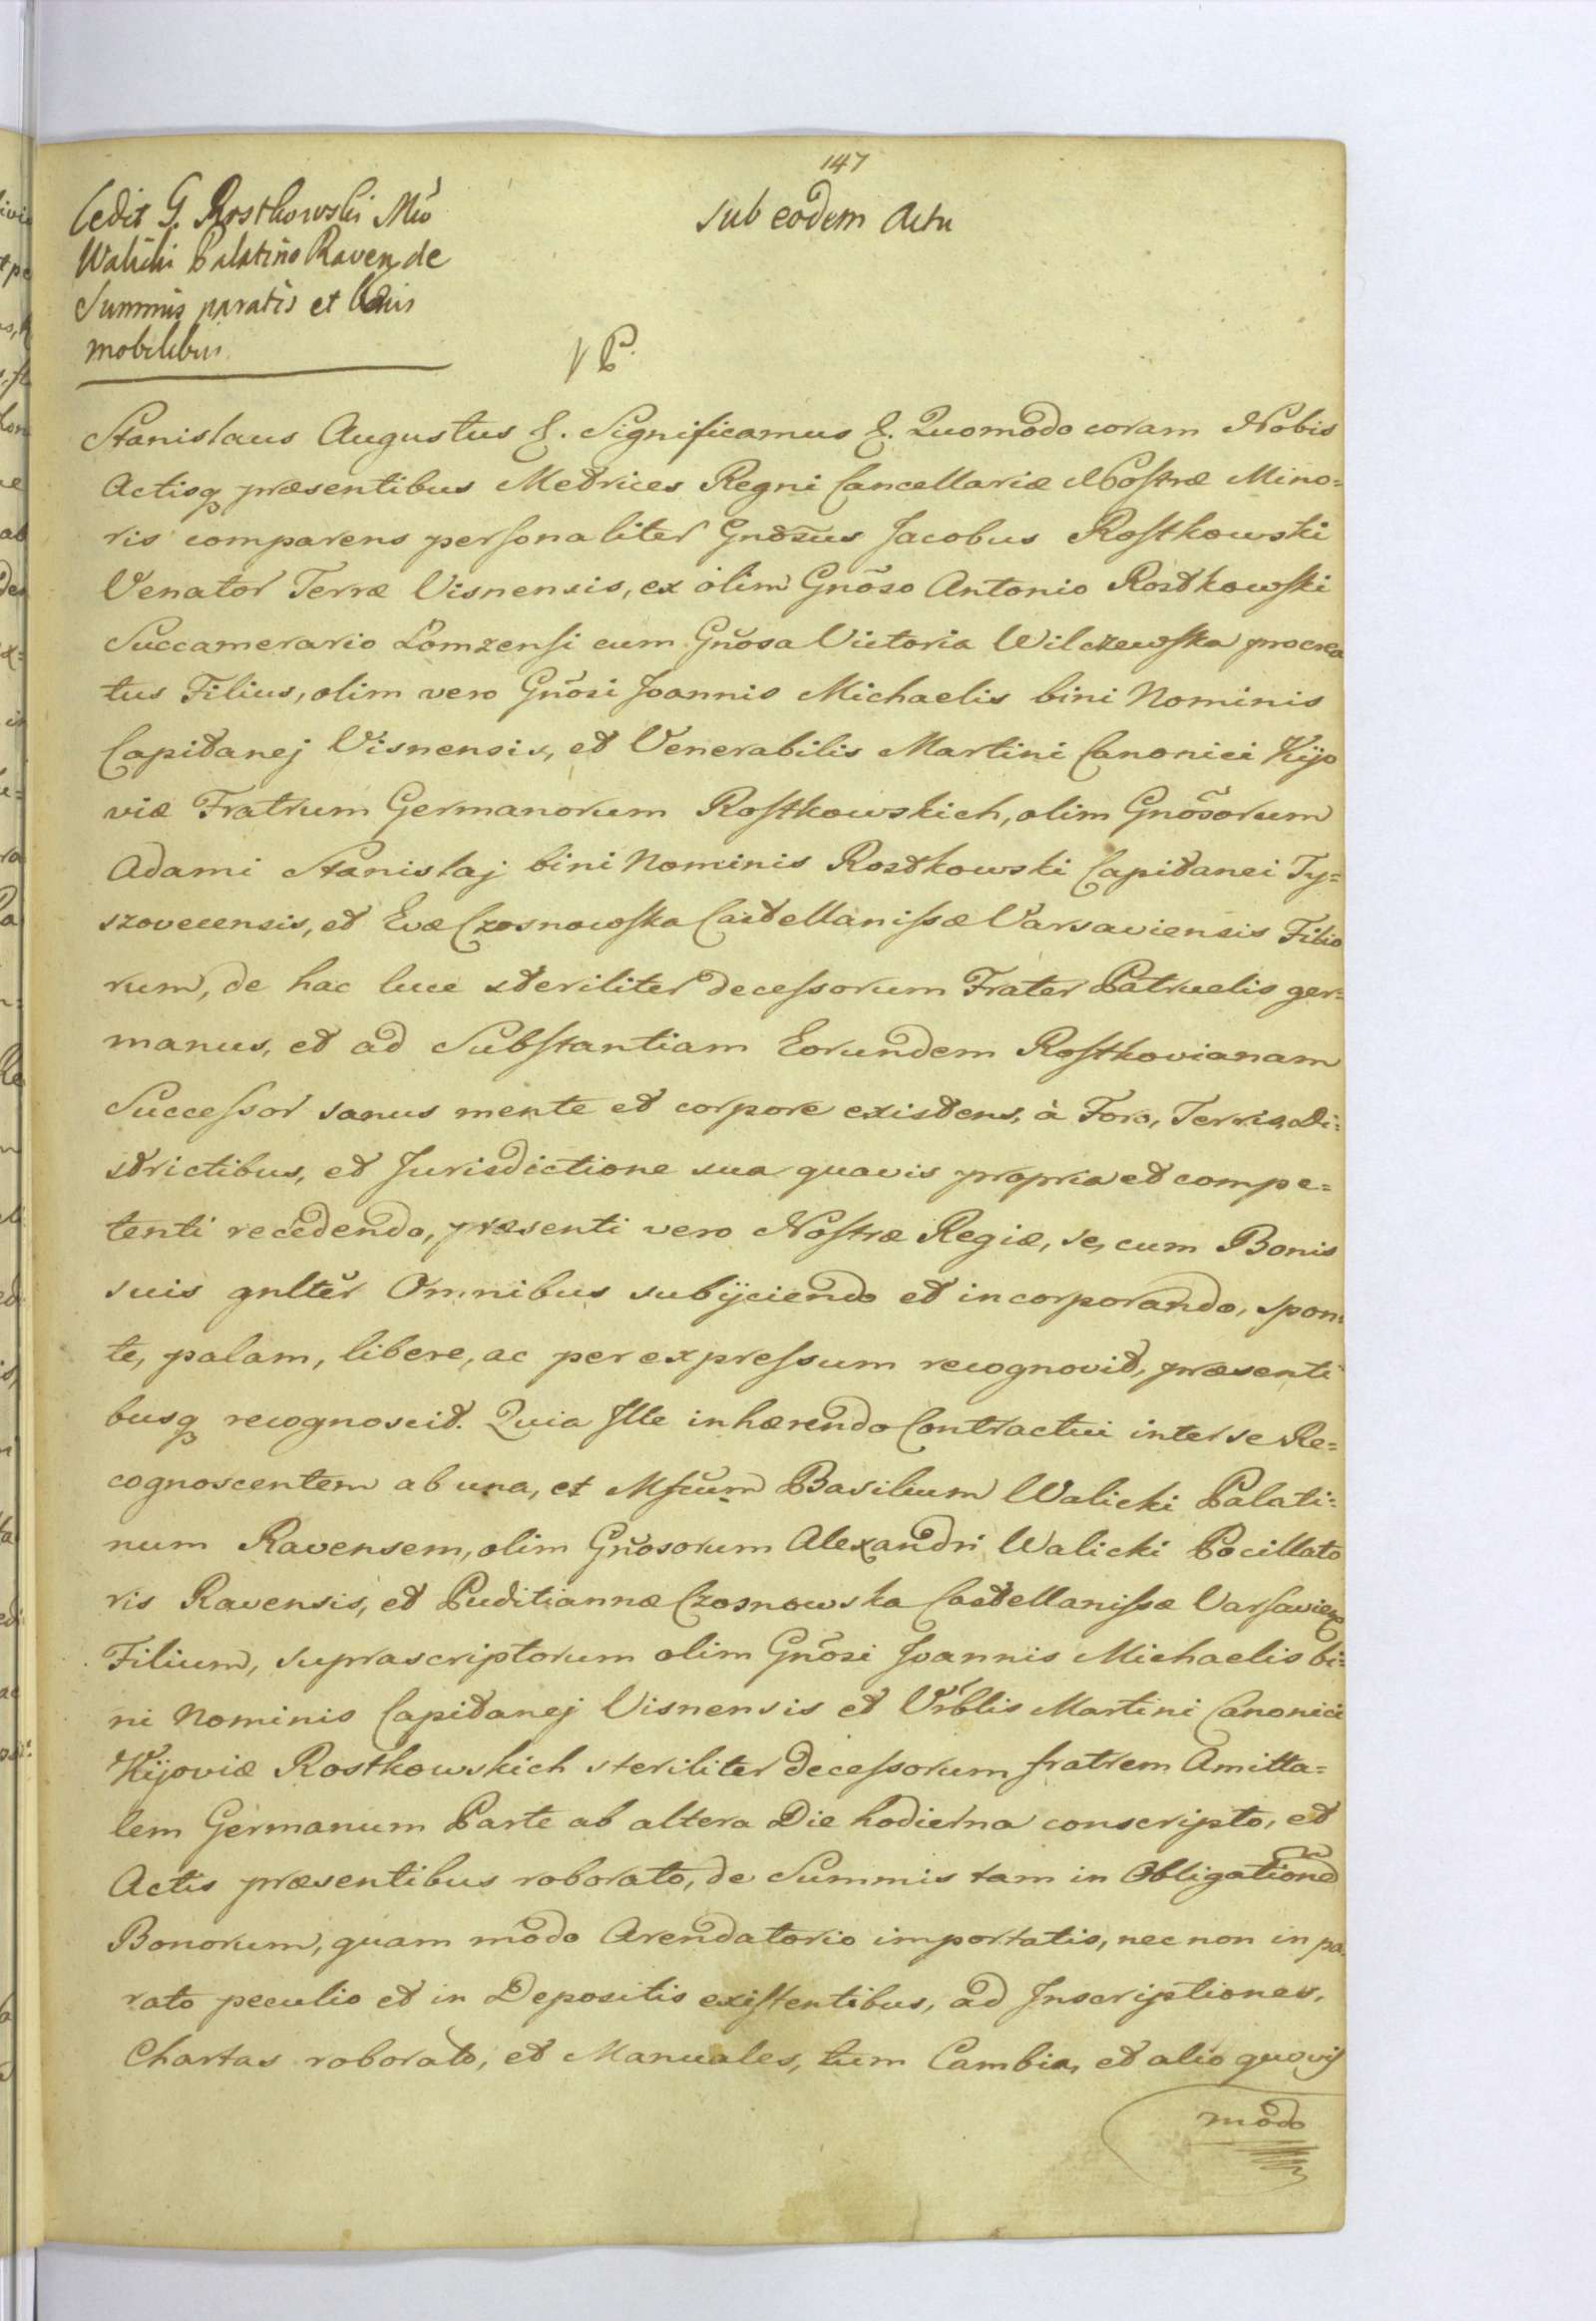 147
Cedit G. Rostkowski Mco
Walicki Palatino Raven de
Summis paratis et bonis
mobilibus
sub eodem Actu
Stanislaus Augustus &. Significamus &. Quomodo coram Nobis
Actisq præsentibus Metrices Regni Cancellariæ Nostræ Mino=
ris comparens personaliter Gnosus Jacobus Rostkowski
Venator Terræ Visnensis, ex olim Gnoso Antonio Rostkowski
Succamerario Łomzensi cum Gnosa Victoria Wilczewska procrea
tus Filius, olim vero Gnosi Joannis Michaelis bini Nominis
Capitanej Visnensis, et Venerabilis Martini Canonici Kijo
viæ Fratrum Germanorum Rostkowskich, olim Gnosorum
Adami Stanislaj bini Nominis Rostkowski Capitanei Ty=
szovecensis, et Evæ Czosnowska Castellanissæ Varsaviensis Filio
rum, de hac luce steriliter decessorum Frater Patruelis ger=
manus, et ad Substantiam Eorundem Rostkovianam
Successor sanus mente et corpore existens, à Foro, Terris, Di=
strictibus, et Jurisdictione sua quavis propria et compe=
tenti recedendo, præsenti vero Nostræ Regiæ, se, cum Bonis
suis gnlter Omnibus subijciendo et incorporando, spon=
te, palam, libere, ac per expressum recognovit, præsenti
busq recognoscit. Quia Ille inhærendo Contractui inter se Re=
cognoscentem ab una, et Mfcum Basilium Walicki Palati=
num Ravensem, olim Gnosorum Alexandri Walicki Pocillato
ris Ravensis, et Puditiannæ Czosnowska Castellanissæ Varsavien
Filium, suprascriptorum olim Gnosi Joannis Michaelis bi=
ni Nominis Capitanej Visnensis et Vrblis Martini Canonici
Kijoviæ Rostkowskich steriliter decessorum fratrem Amitta=
lem Germanum Parte ab altera Die hodierna conscripto, et
Actis præsentibus roborato, de Summis tam in Obligatione
Bonorum, quam modo Arendatorio importatis, nec non in pa=
rato peculio et in Depositis existentibus, ad Inscriptiones,
Chartas roborato, et Manuales, tum Cambia, et alio quovis
modo